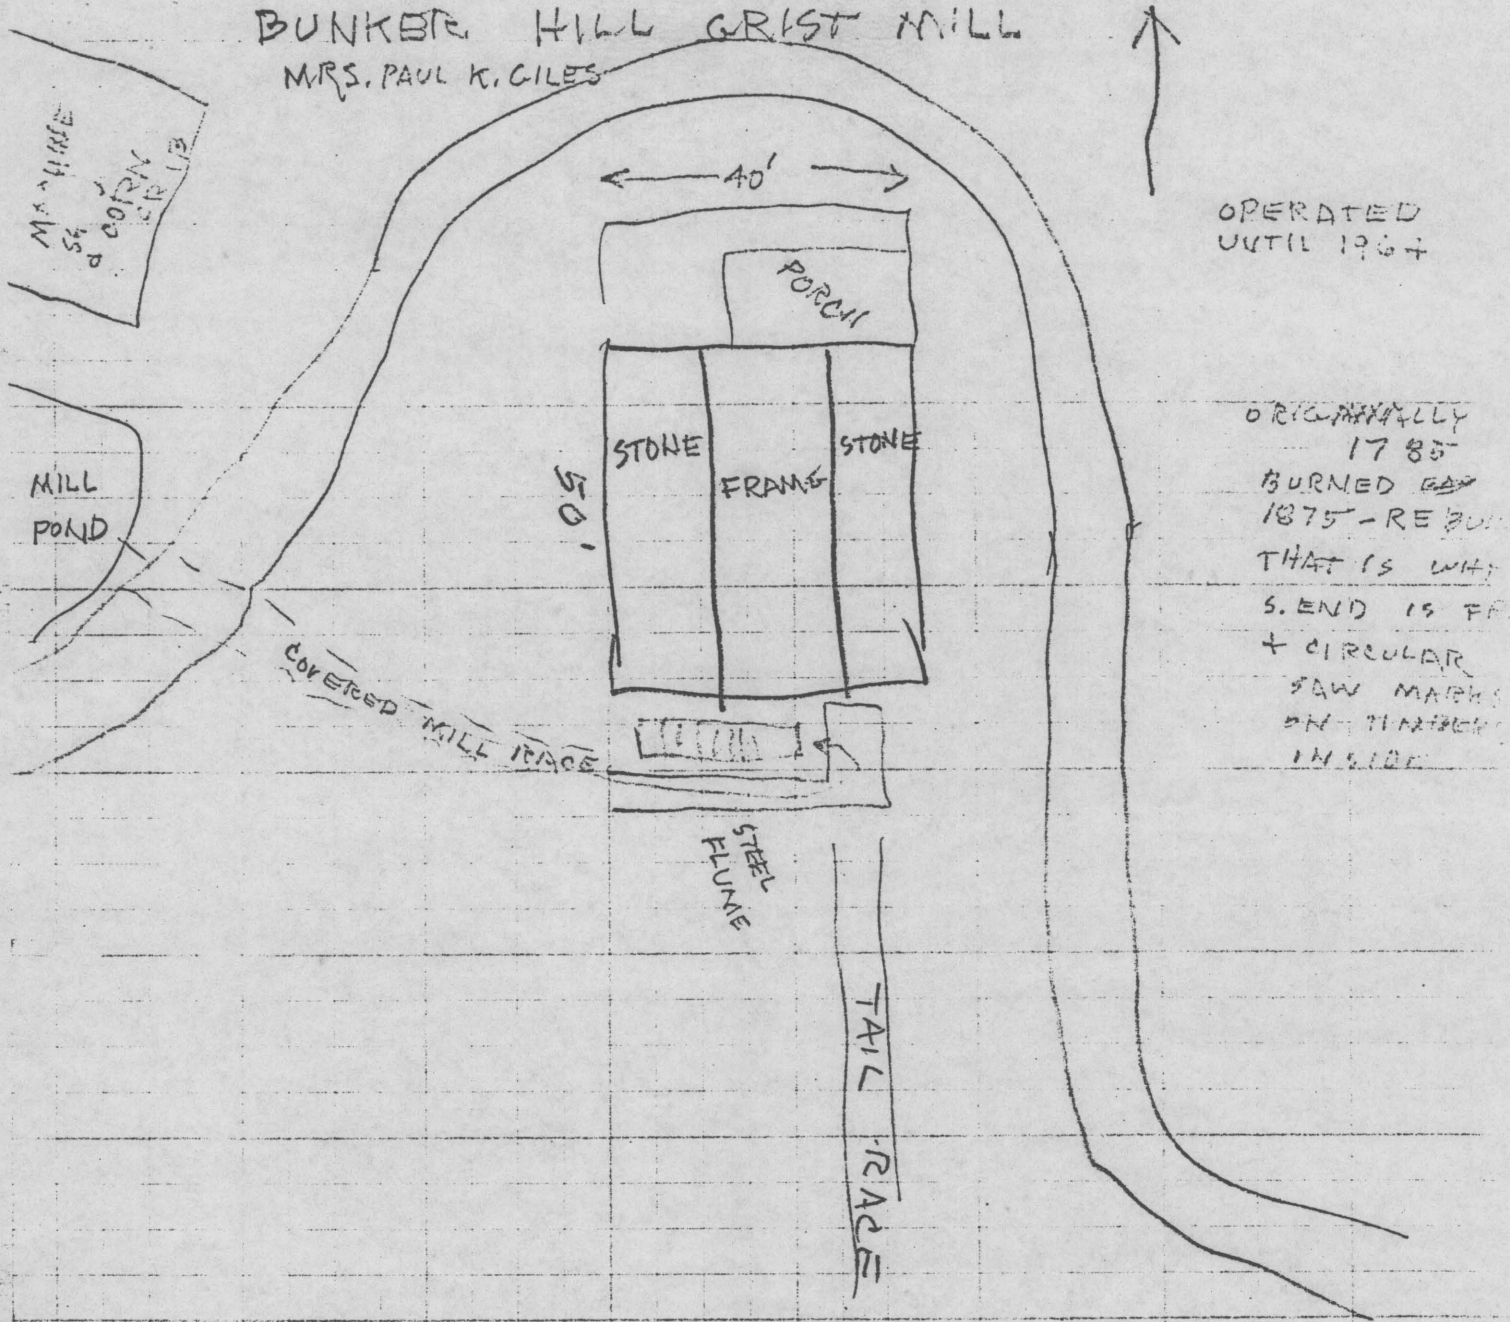 BUNKER HILL GRIST MILL
MRS. PAUL K. GILES
MACHINE
CORN
CRIB
40'
PORCH
OPERATED
UNTIL 1964
STONE
FRAME
STONE
50'
MILL
POND
COVERED MILL RACE
STEEL
FLUME
TAIL RACE
1785
BURNED
1875 - REBUI
THAT IS WHY
S. END IS FR
+ CIRCULAR
SAW MARKS
ON TIMBERS
INSIDE